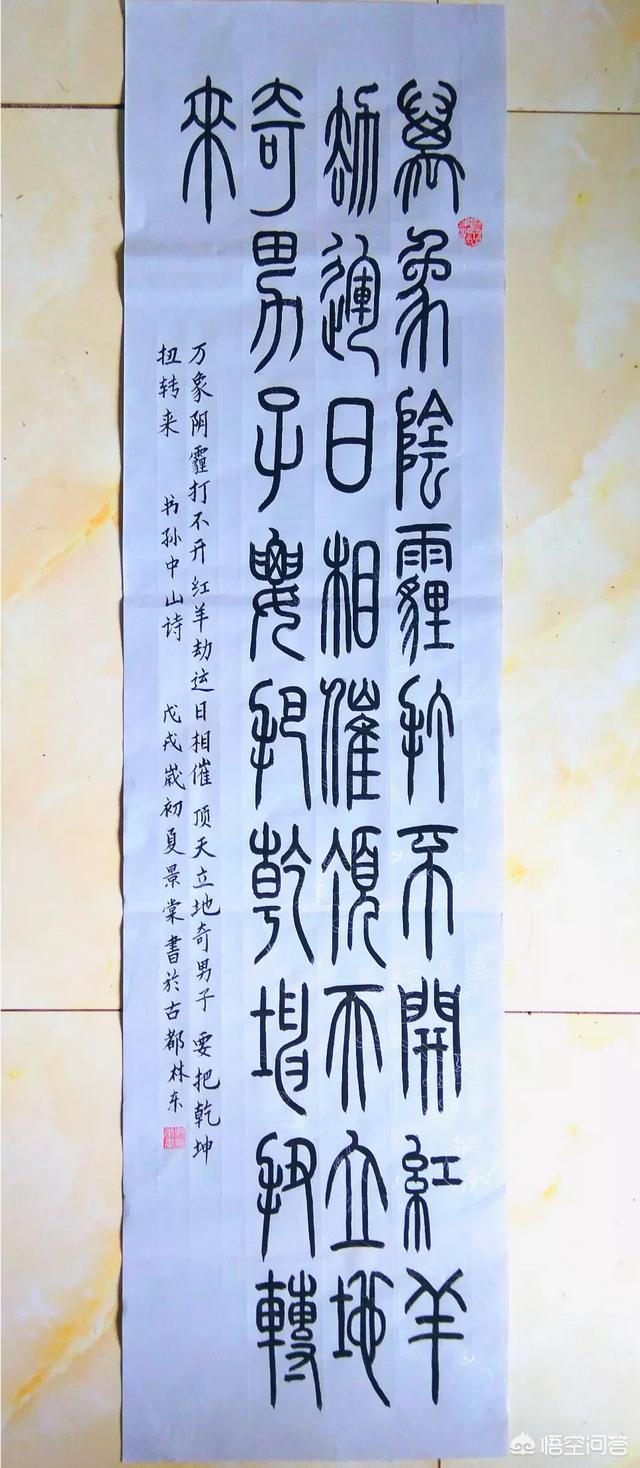 萬象陰霾打不開紅羊
劫運日相催頂天立地
奇男子要把乾坤扭轉
來
万象阴霾打不开红羊劫运日相催 顶天立地奇男子 要把乾坤
扭转来 书孙中山诗 戊戌歲初夏景棠書於古都林东
悟空问答